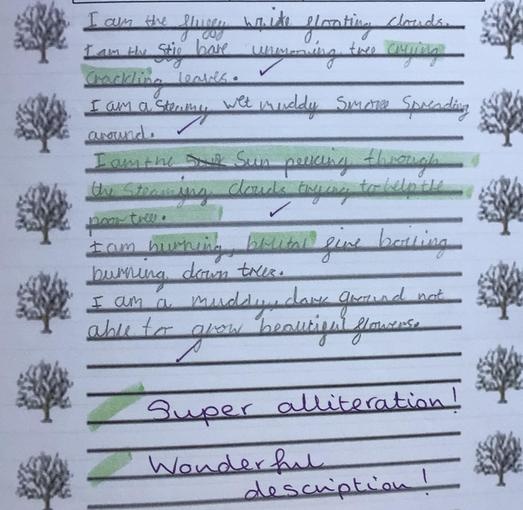 I am the fluffy white floating clouds.
I am the Stif bare unmoving tree crying
crackling leaves.
I am a Steamy, wet muddy Smoke Spreading
around.
I am the Sun peeking through
the Steaming clouds trying to help the
poor tree.
I am burning, brutal fire boiling
burning down trees.
I am a muddy, dark ground not
able to grow beautiful flowers.
Super alliteration!
Wonderful
description!